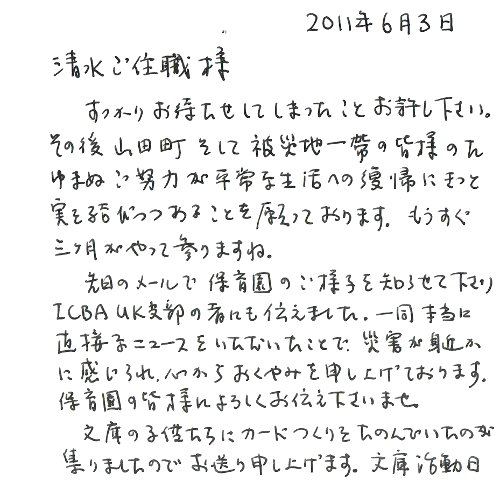 2011年6月3日
清水ご住職様
すっかりお待たせしてしまったことお許し下さい。
その後山田町そして被災地一帯の皆様のた
ゆまぬご努力が平常な生活への復帰にきっと
実を結びつつあることを願っております。もうすぐ
三ヶ月がやって参りますね。
先日のメールで保育園のご様子を知らせて下さり
ICBA UK支部の者にも伝えました。一同本当に
直接なニュースをいただいたことで、災害が身近か
に感じられ、心からおくやみを申し上げております。
保育園の皆様によろしくお伝え下さいませ。
文庫の子供たちにカードつくりをたのんでいたのが
集りましたのでお送り申し上げます。文庫活動日